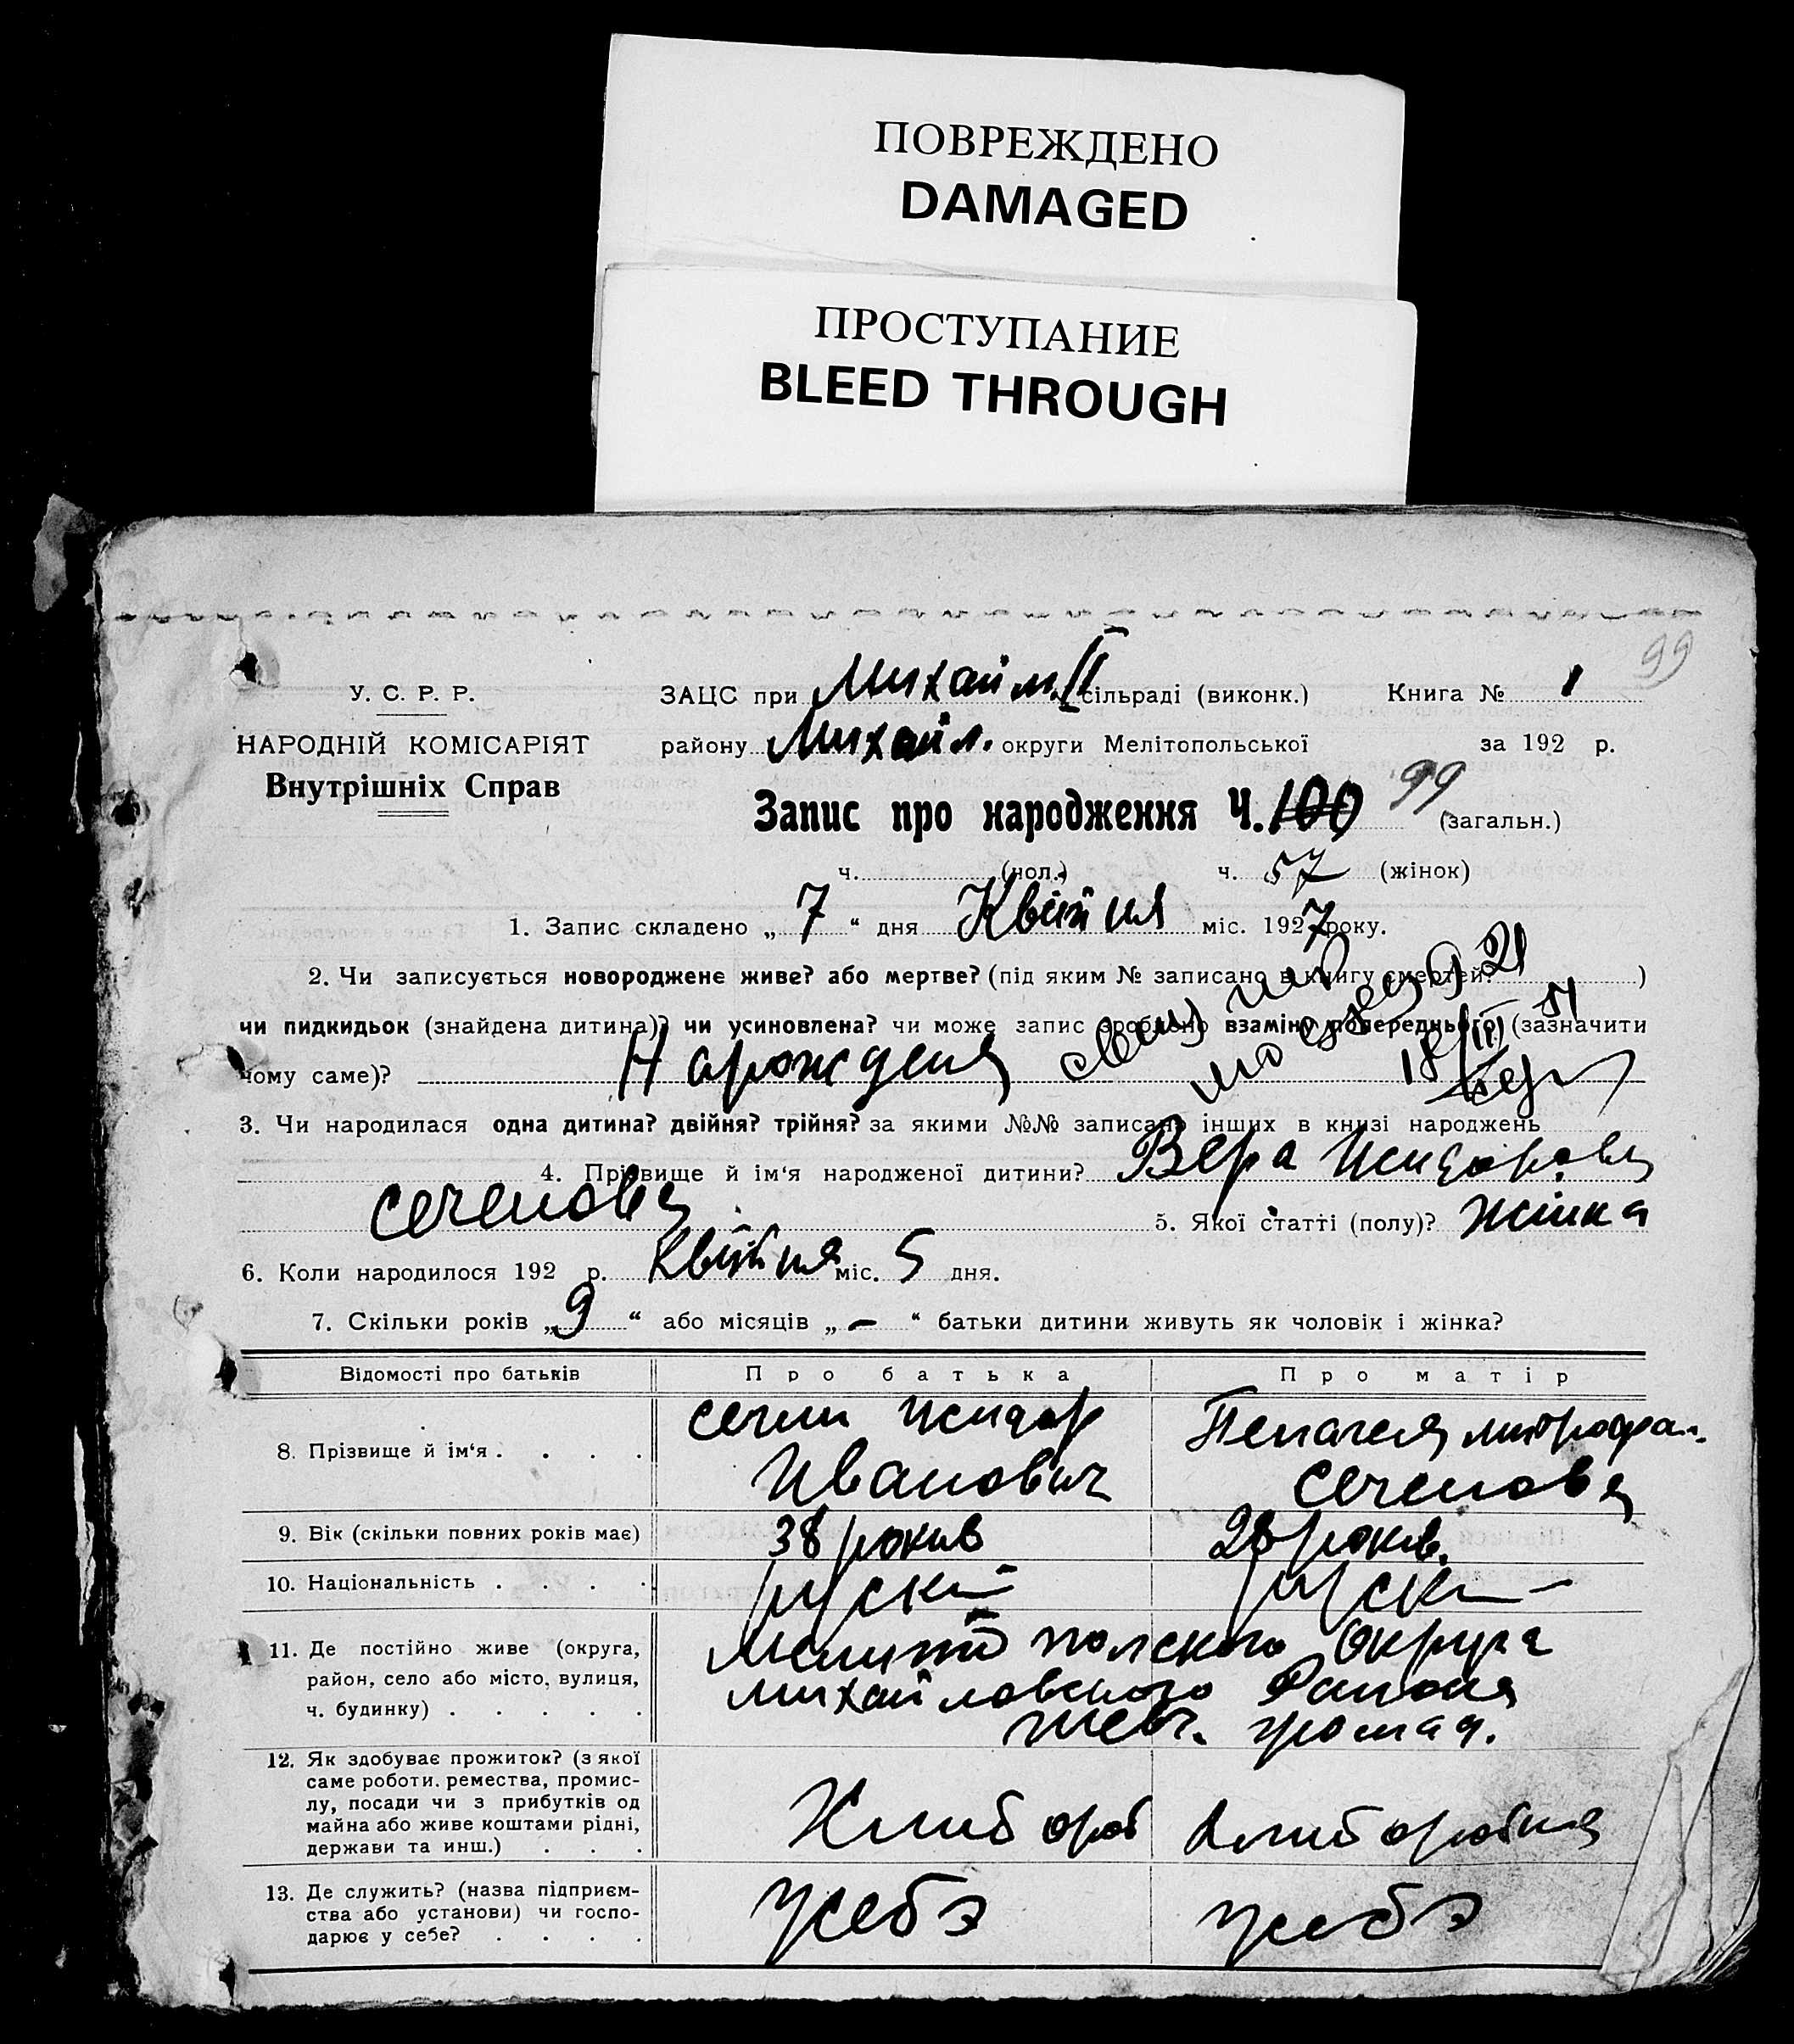 ПОВРЕЖДЕНО
DAMAGED
ПРОСТУПАНИЕ
BLEED THROUGH
99
У. С. Р. Р.
НАРОДНІЙ КОМІСАРІЯТ
Внутрішніх Справ
ЗАЦС при Михайл. II сільраді (виконк.) Книга № 1
району Михайл. округи Мелітопольської за 192 р.
Запис про народження Ч. 100 99 (загальн.)
ч. (чол.) ч. 57 (жінок)
1. Запис складено „ 7 “ дня Квітня міс. 1927 року.
2. Чи записується новороджене живе? або мертве? (під яким № записано в книгу смертей? )
чи пидкидьок (знайдена дитина)? чи усиновлена? чи може запис зроблено взаміну попереднього) (зазначити
чому саме)? Нарождения
3. Чи народилася одна дитина? двійня? трійня? за якими №№ записано інших в книзі народжень
4. Прізвище й ім‘я народженої дитини? Вера Исидорова
Сеченова 5. Якої статті (полу)? жінка
6. Коли народилося 192 р. Квітня міс. 5 дня.
7. Скільки років „ 9 “ або місяців „ – “ батьки дитини живуть як чоловік і жінка?
Відомості про батьків Про батька Про матір
8. Прізвище й ім‘я . . . . Сечин Исидор Иванович Пелагея митрофан. Сеченова
9. Вік (скільки повних років має) 38 років 28 років.
10. Національність . . . . руски руски
11. Де постійно живе (округа, Мелитопольского Округа
район, село або місто, вулиця, михайловского Района
ч. будинку) . . . . . громад.
12. Як здобуває прожиток? (з якої
саме роботи. ремества, промис-
лу, посади чи з прибутків од
майна або живе коштами рідні,
держави та инш.) . . . Хлибороб Хлиборобка
13. Де служить? (назва підприєм-
ства або установи) чи госпо-
дарює у себе? . . . . у себэ у себэ